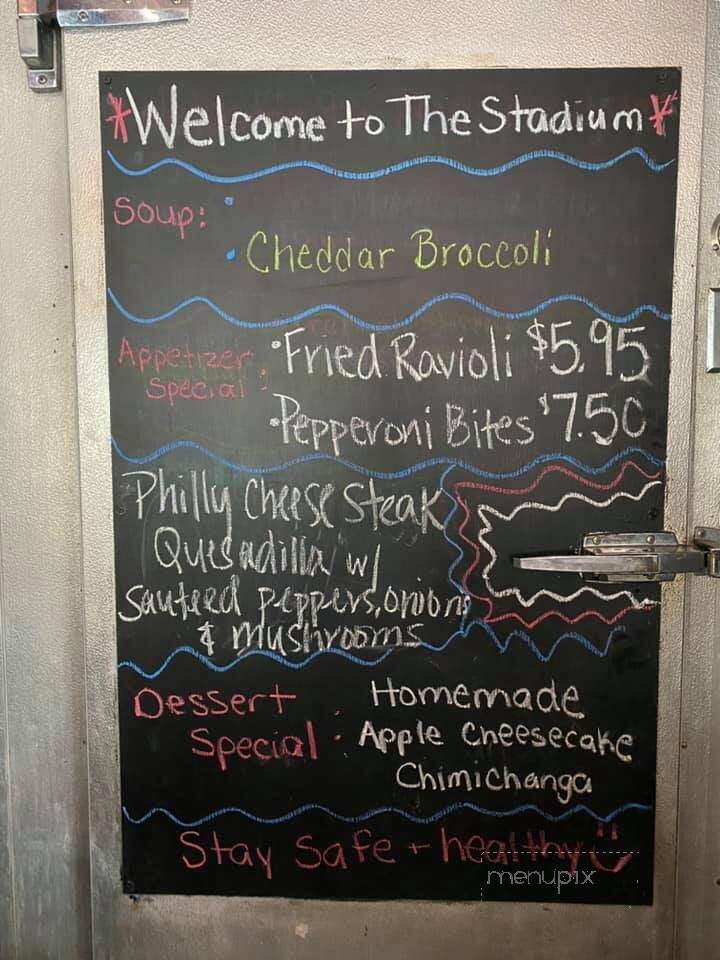 Welcome to The Stadium
Soup:
Cheddar Broccoli
Appetizer Special: • Fried Ravioli $5.95
• Pepperoni Bites $7.50
Philly Cheese Steak
Quesadilla w/
sauteed peppers, onions
& mushrooms
Dessert Special: Homemade
Apple Cheesecake
Chimichanga
Stay Safe + healthy
menupix